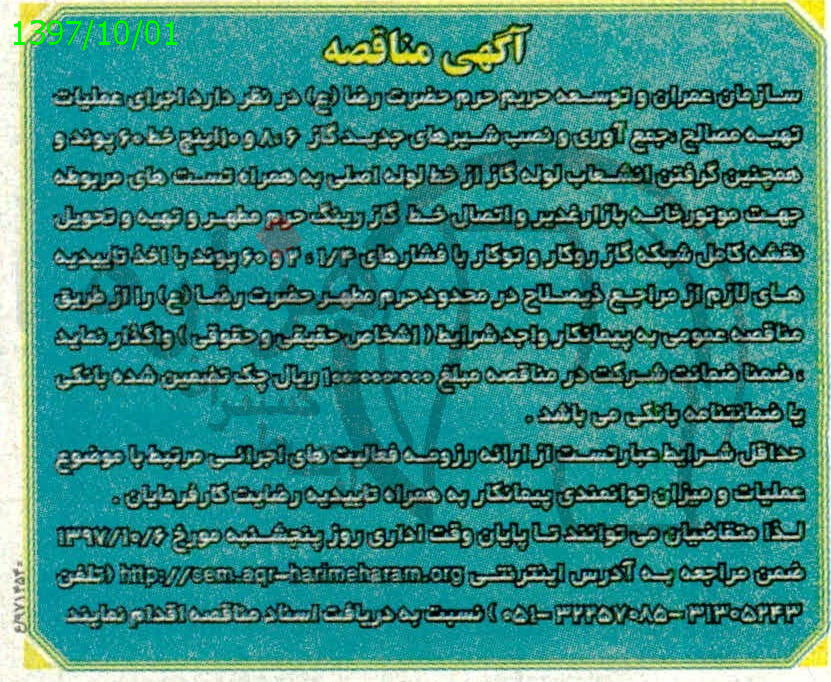 1397/10/01
آگهی مناقصه
سازمان عمران و توسعه حریم حرم حضرت رضا (ع) در نظر دارد اجرای عملیات
تهیه مصالح ،جمع آوری و نصب شیرهای جدید گاز ۶ ،۸ و ۱۰اینچ خط ۶۰ پوند و
همچنین گرفتن انشعاب لوله گاز از خط لوله اصلی به همراه تست های مربوطه
جهت موتورخانه بازارغدیر و اتصال خط گاز رینگ حرم مطهر و تهیه و تحویل
نقشه کامل شبکه گاز روکار و توکار با فشارهای ۱/۴ ، ۲ و ۶۰ پوند با اخذ تاییدیه
های لازم از مراجع ذیصلاح در محدود حرم مطهر حضرت رضا (ع) را از طریق
مناقصه عمومی به پیمانکار واجد شرایط ( اشخاص حقیقی و حقوقی ) واگذار نماید
، ضمنا ضمانت شرکت در مناقصه مبلغ ۱۰۰،۰۰۰،۰۰۰ ریال چک تضمین شده بانکی
یا ضمانتنامه بانکی می باشد .
حداقل شرایط عبارتست از ارائه رزومه فعالیت های اجرائی مرتبط با موضوع
عملیات و میزان توانمندی پیمانکار به همراه تاییدیه رضایت کارفرمایان .
لذا متقاضیان می توانند تا پایان وقت اداری روز پنجشنبه مورخ ۱۳۹۷/۱۰/۶
ضمن مراجعه به آدرس اینترنتی http://oem.aqr-harimeharam.org (تلفن
۳۱۳۰۵۲۴۳ – ۳۲۲۵۷۰۸۵ –۰۵۱ ) نسبت به دریافت اسناد مناقصه اقدام نمایند